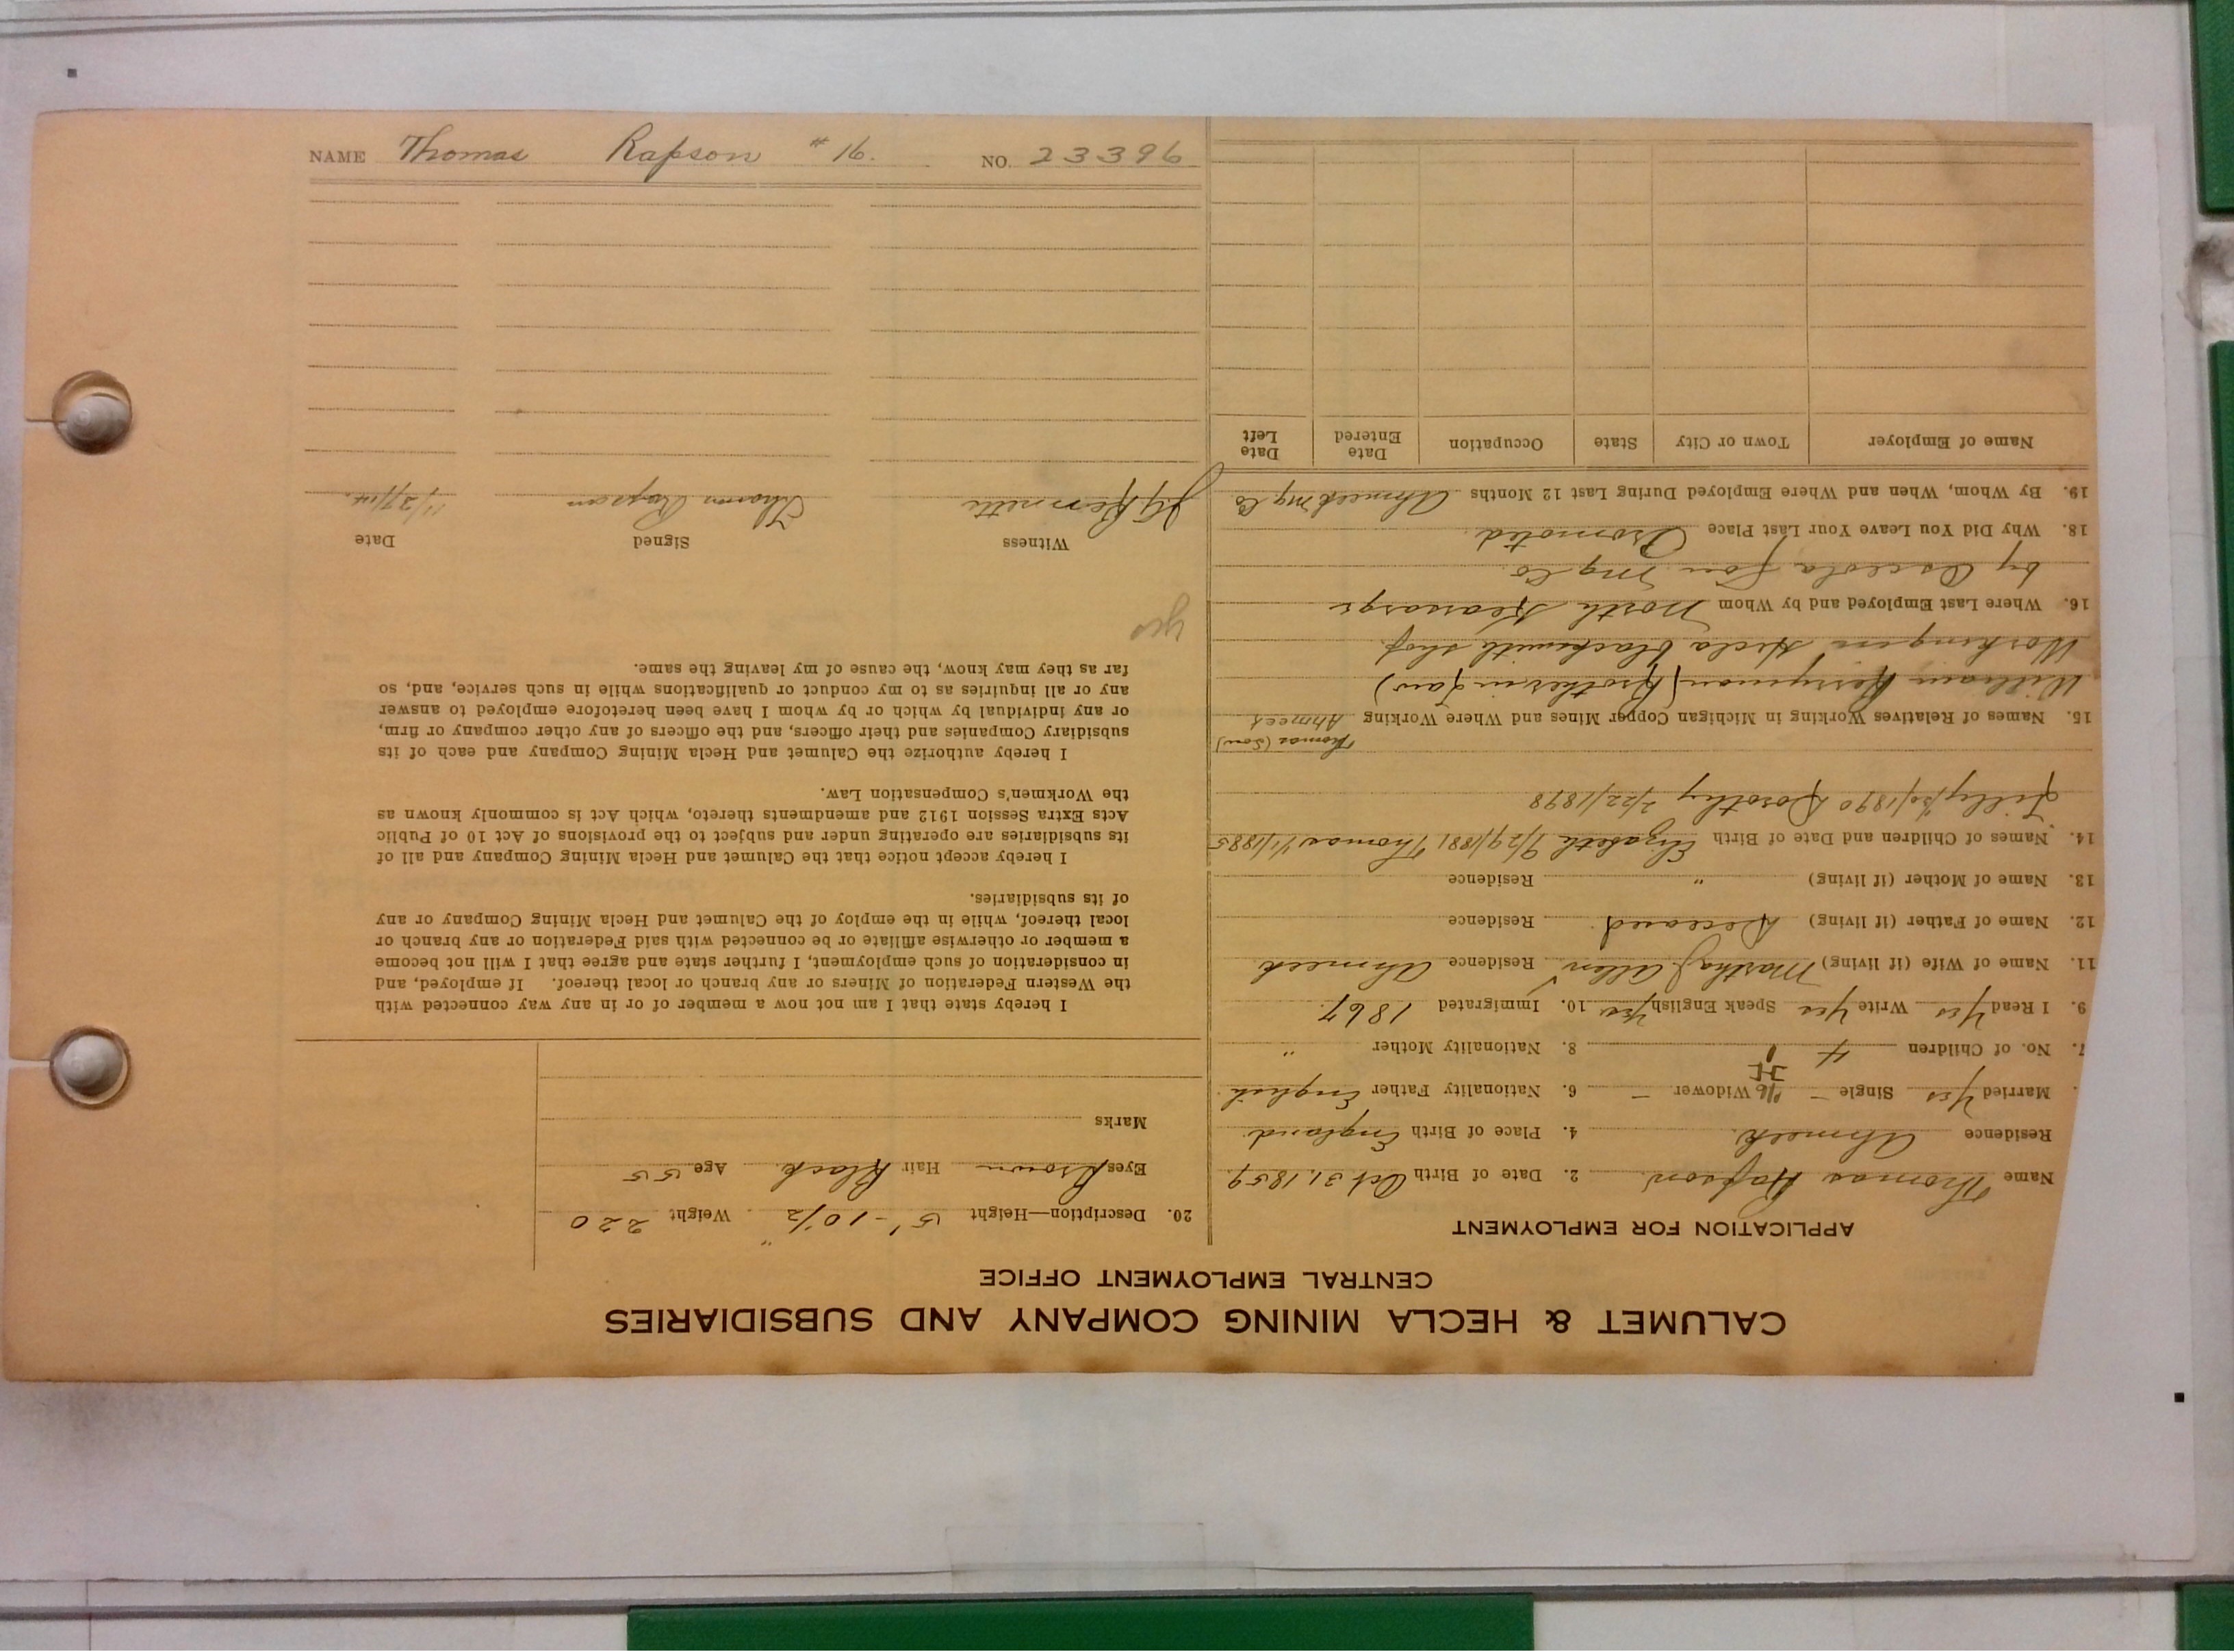 CALUMET & HECLA MINING COMPANY AND SUBSIDIARIES
CENTRAL EMPLOYMENT OFFICE
APPLICATION FOR EMPLOYMENT
Name Thomas Rapson. 2. Date of Birth Oct 31, 1859.
Residence Ahmeek. 4. Place of Birth England.
Married Yes Single — Widower — 6. Nationality Father English
7. No. of Children 4 8. Nationality Mother "
9. I Read Yes Write Yes Speak English Yes 10. Immigrated 1867.
11. Name of Wife (if living) Martha J Allen Residence Ahmeek
12. Name of Father (if living) Deceased. Residence
13. Name of Mother (if living) " Residence
14. Names of Children and Date of Birth Elizabeth 9/29/1881 Thomas 1/1/1885
Lilly 1/30/1890 Dorothy 2/22/1898
Thomas (Son)
15. Names of Relatives Working in Michigan Copper Mines and Where Working Ahmeek
William Berryman (Brother in Law)
Working in Hecla blacksmith shop.
16. Where Last Employed and by Whom North Kearsarge
by Osceola Con Mg Co.
18. Why Did You Leave Your Last Place Promoted.
19. By Whom, When and Where Employed During Last 12 Months Ahmeek Mg Co
Name of Employer Town or City State Occupation Date Entered Date Left
20. Description—Height 5'-10 1/2" Weight 220
Eyes Brown Hair Black. Age 55
Marks
I hereby state that I am not now a member of or in any way connected with
the Western Federation of Miners or any branch or local thereof. If employed, and
in consideration of such employment, I further state and agree that I will not become
a member or otherwise affiliate or be connected with said Federation or any branch or
local thereof, while in the employ of the Calumet and Hecla Mining Company or any
of its subsidiaries.
I hereby accept notice that the Calumet and Hecla Mining Company and all of
its subsidiaries are operating under and subject to the provisions of Act 10 of Public
Acts Extra Session 1912 and amendments thereto, which Act is commonly known as
the Workmen's Compensation Law.
I hereby authorize the Calumet and Hecla Mining Company and each of its
subsidiary Companies and their officers, and the officers of any other company or firm,
or any individual by which or by whom I have been heretofore employed to answer
any or all inquiries as to my conduct or qualifications while in such service, and, so
far as they may know, the cause of my leaving the same.
Yes
Witness Signed Date
Thomas Rapson 11/27/14.
NAME Thomas Rapson #16. NO. 23396